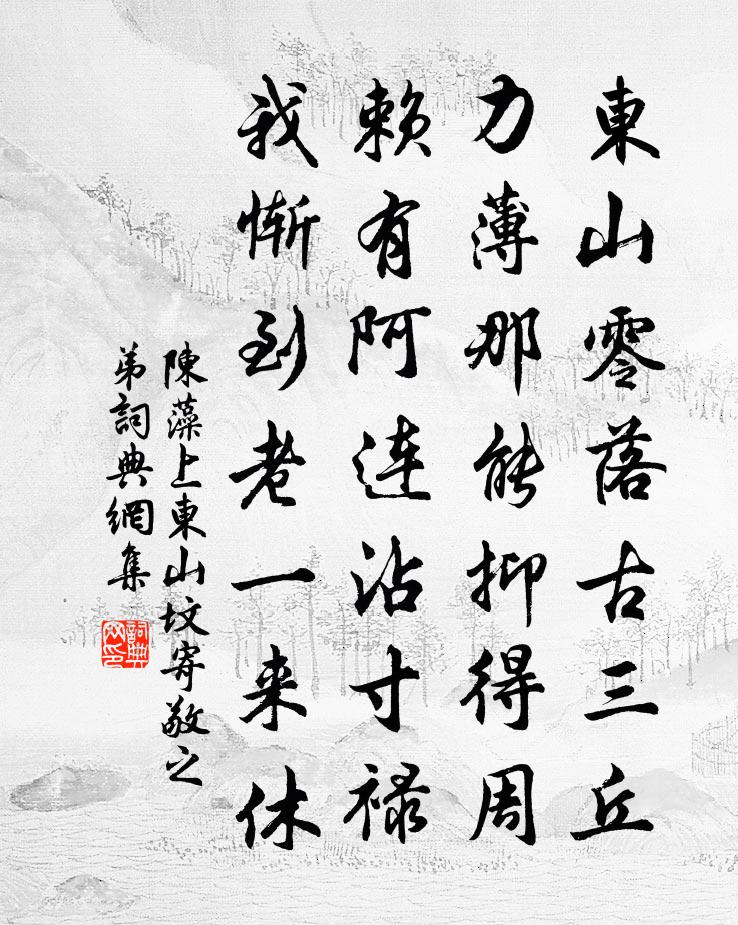 東山零落古三丘
力薄那能抑得周
赖有阿连沾寸禄
我慚到老一来休
陳藻上東山坟寄敬之
弟詞典網集
詞典网印